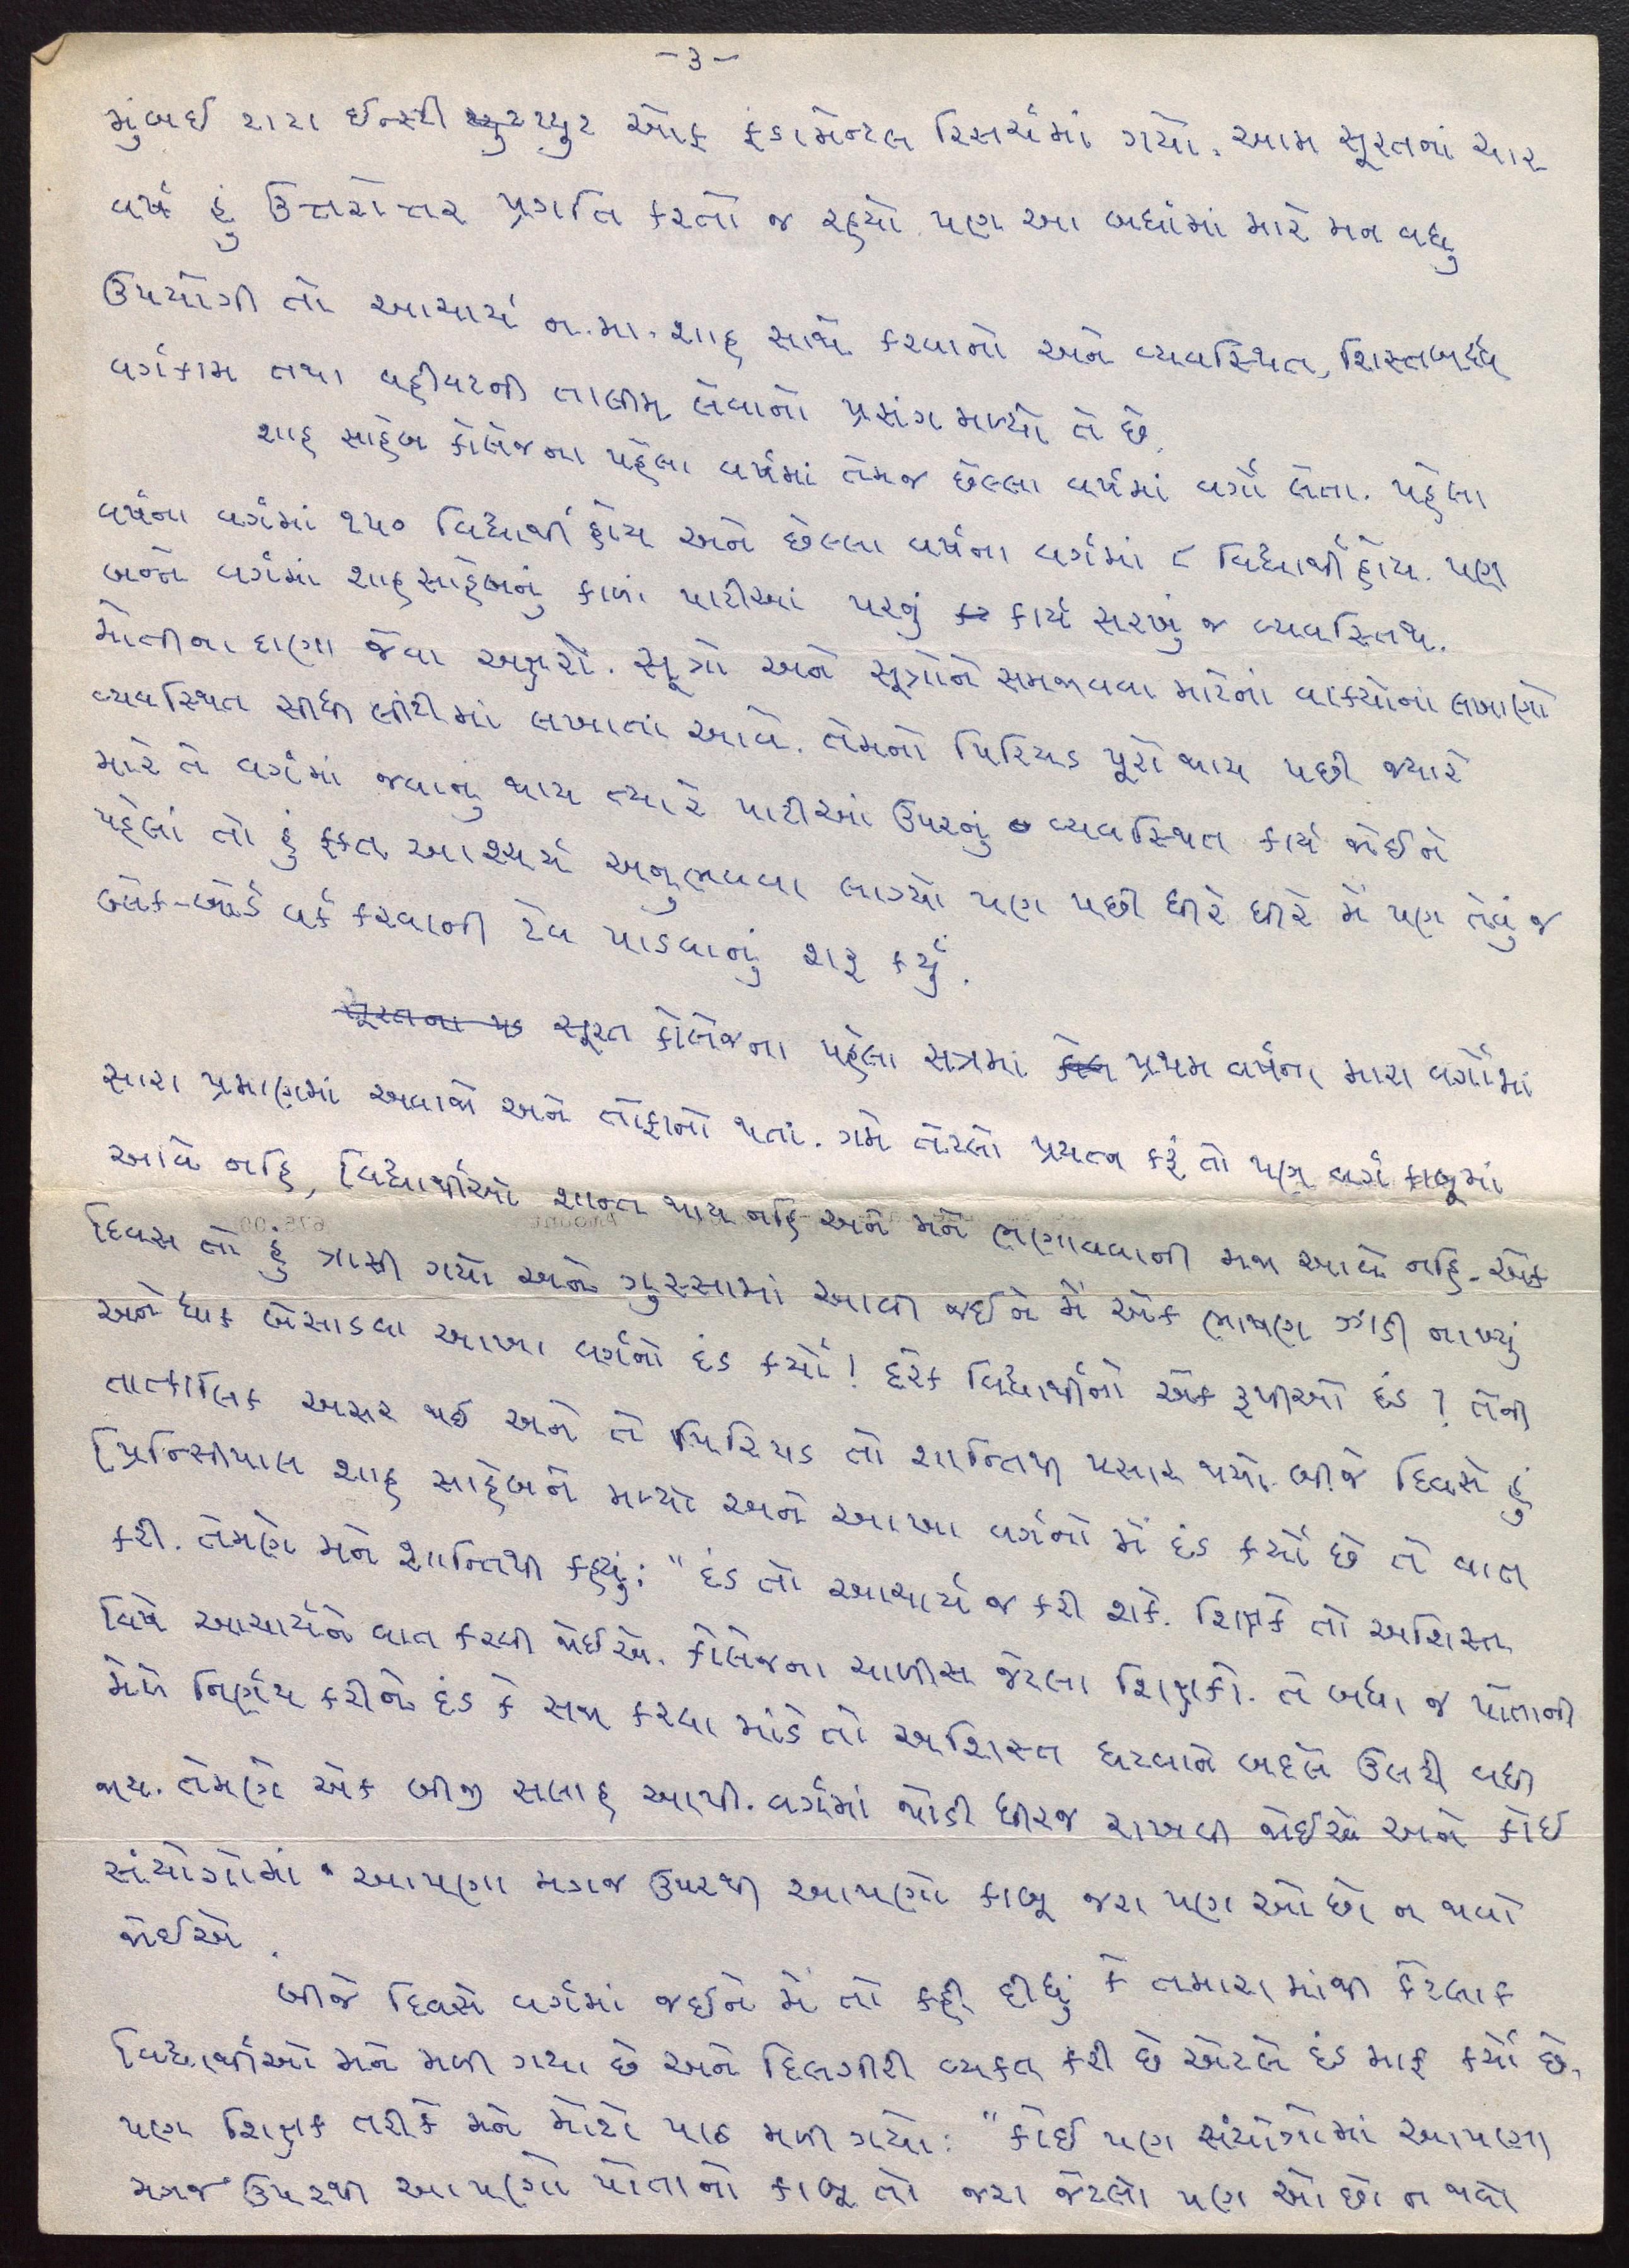 -૩-
મુંબઈ ટાટા ઈન્સ્ટીટ્યુટ ઓફ ફંડામેન્ટલ રિસર્ચમાં ગયો. આમ સૂરતનાં ચાર
વર્ષ હું ઉત્તરોત્તર પ્રગતિ કરતો જ રહ્યો. પણ આ બધાંમાં મારે મન વધુ
ઉપયોગી તો આચાર્ય ન.મા.શાહ સાથે કરવાનો અને વ્યવસ્થિત, શિસ્તબધ્ધ
વર્ગકામ તથા વહીવટની તાલીમ લેવાનો પ્રસંગ મળ્યો તે છે.
શાહ સાહેબ કોલેજના પહેલા વર્ષમાં તેમજ છેલ્લા વર્ષમાં વર્ગો લેતા. પહેલા
વર્ષના વર્ગમાં ૧૫૦ વિદ્યાર્થી હોય અને છેલ્લા વર્ષના વર્ગમાં ૮ વિદ્યાર્થી હોય. પણ
બન્ને વર્ગમાં શાહસાહેબનું કાળા પાટીઆં પરનું કાર્ય સરખું જ વ્યવસ્તિથ.
મોતીના દાણા જેવા અક્ષરો. સૂત્રો અને સૂત્રોને સમજાવવા માટેનાં વાક્યોનાં લખાણો
વ્યવસ્થિત સીધી લીટીમાં લખાતાં આવે. તેમનો પિરિયડ પૂરો થાય પછી જ્યારે
મારે તે વર્ગમાં જવાનું થાય ત્યારે પાટીઆં ઉપરનું વ્યવસ્થિત કાર્ય જોઈને
પહેલાં તો હું ફક્ત આશ્ચર્ય અનુભવવા લાગ્યો પણ પછી ધીરે ધીરે મેં પણ તેવું જ
બ્લેક-બોર્ડ વર્ક કરવાની ટેવ પાડવાનું શરૂ કર્યું.
સૂરત કોલેજના પહેલા સત્રમાં પ્રથમ વર્ષના મારા વર્ગોમાં
સારા પ્રમાણમાં અવાજો અને તોફાનો થતાં. ગમે તેટલો પ્રયત્ન કરું તો પણ વર્ગ કાબૂમાં
આવે નહિ, વિદ્યાર્થીઓ શાન્ત થાય નહિ અને મને ભણાવવાની મજા આવે નહિ. એક
દિવસ તો હું ત્રાસી ગયો અને ગુસ્સામાં આવી જઈને મેં એક ભાષણ ઝાડી નાખ્યું
અને ધાક બેસાડવા આખા વર્ગનો દંડ કર્યો! દરેક વિદ્યાર્થીનો એક રૂપીઓ દંડ! તેની
તાત્કાલિક અસર થઈ અને તે પિરિયડ તો શાન્તિથી પસાર થયો. બીજે દિવસે હું
પ્રિન્સિપાલ શાહ સાહેબને મળ્યો અને આખા વર્ગનો મેં દંડ કર્યો છે તે વાત
કરી. તેમણે મને શાન્તિથી કહ્યું: "દંડ તો આચાર્ય જ કરી શકે. શિક્ષકે તો અશિસ્ત
વિષે આચાર્યને વાત કરવી જોઈએ. કોલેજના ચાળીસ જેટલા શિક્ષકો. તે બધા જ પોતાની
મેળે નિર્ણય કરીને દંડ કે સજા કરવા માંડે તો અશિસ્ત ઘટવાને બદલે ઉલટી વધી
જાય. તેમણે એક બીજી સલાહ આપી. વર્ગમાં થોડી ધીરજ રાખવી જોઈએ અને કોઈ
સંયોગોમાં આપણા મગજ ઉપરથી આપણો કાબૂ જરા પણ ઓછો ન થવો
જોઈએ.
બીજે દિવસે વર્ગમાં જઈને મેં તો કહી દીધું કે તમારા માંથી કેટલાક
વિદ્યાર્થીઓ મને મળી ગયા છે અને દિલગીરી વ્યક્ત કરી છે એટલે દંડ માફ કર્યો છે.
પણ શિક્ષક તરીકે મને મોટો પાઠ મળી ગયો: "કોઈ પણ સંયોગોમાં આપણા
મગજ ઉપરથી આપણો પોતાનો કાબૂ તો જરા જેટલો પણ ઓછો ન થવો